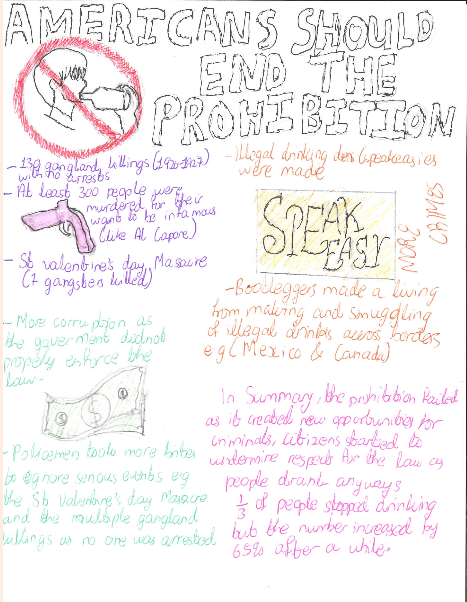 AMERICANS SHOULD
END THE
PROHIBITION
- 130 gangland killings (1926-1927)
with no arrests
- At least 300 people were
murdered for their
want to be infamous
(like Al Capone)
- St valentine's day Massacre
(7 gangsters killed)
- More corruption as
the goverment did not
properly enforce the
law -
$
- Policemen took more bribes
to ignore serious events e.g
the St Valentine's day Massacre
and the multiple gangland
killings as no one was arrested
- Illegal drinking dens (speakeasies
were made
SPEAK
EASY
MORE
CRIMES
- Bootleggers made a living
from making and smuggling
of illegal drinks across borders
e.g (Mexico & Canada)
In Summary, the prohibition failed
as it created new opportunities for
criminals, citizens started to
undermine respect for the law as
people drank anyways
1/3 of people stopped drinking
but the number increased by
65% after a while.